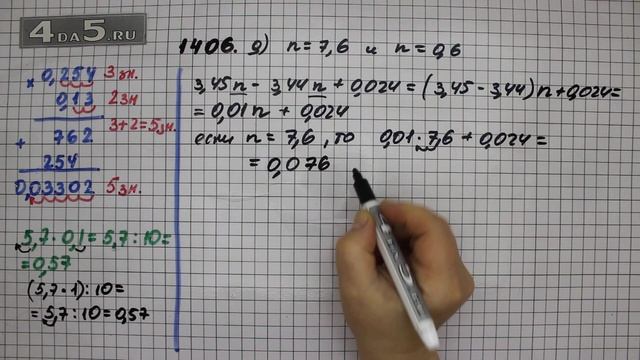 4DA5.RU
1406. д) n = 7,6 и n = 0,6
3,45n - 3,44n + 0,024 = (3,45 - 3,44)n + 0,024 =
= 0,01n + 0,024
если n = 7,6, то 0,01 · 7,6 + 0,024 =
= 0,076
× 0,254 3 зн.
0,13 2 зн
3+2=5 зн.
+ 762
254
0,03302 5 зн.
5,7 · 0,1 = 5,7 : 10 =
= 0,57
(5,7 · 1) : 10 =
= 5,7 : 10 = 0,57